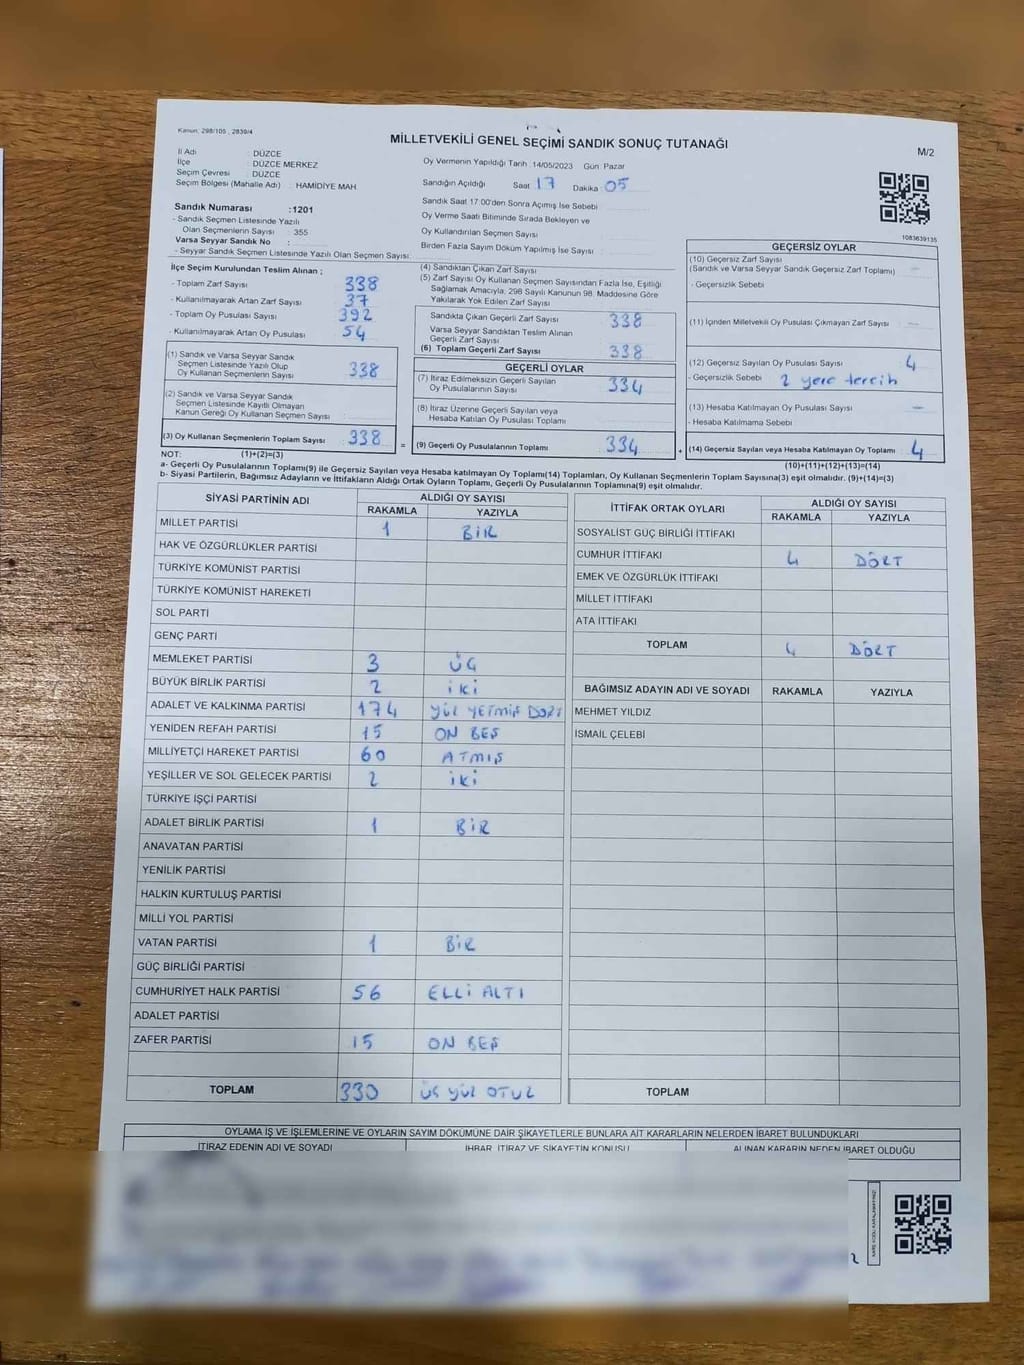 Kanun, 298/105 , 2839/4
MİLLETVEKİLİ GENEL SEÇİMİ SANDIK SONUÇ TUTANAĞI
M/2
İl Adı : DÜZCE
İlçe : DÜZCE MERKEZ
Seçim Çevresi : DÜZCE
Seçim Bölgesi (Mahalle Adı) : HAMİDİYE MAH
Oy Vermenin Yapıldığı Tarih :14/05/2023 Gün: Pazar
Sandığın Açıldığı Saat 17 Dakika 05
Sandık Saat 17:00'den Sonra Açımış İse Sebebi
Oy Verme Saati Bitiminde Sırada Bekleyen ve
Oy Kullandırılan Seçmen Sayısı
Birden Fazla Sayım Döküm Yapılmış İse Sayısı
1083639135
Sandık Numarası :1201
- Sandık Seçmen Listesinde Yazılı
Olan Seçmenlerin Sayısı : 355
Varsa Seyyar Sandık No :
- Seyyar Sandık Seçmen Listesinde Yazılı Olan Seçmen Sayısı:
İlçe Seçim Kurulundan Teslim Alınan ;
- Toplam Zarf Sayısı 338
- Kullanılmayarak Artan Zarf Sayısı 37
- Toplam Oy Pusulası Sayısı 392
- Kullanılmayarak Artan Oy Pusulası 54
(1) Sandık ve Varsa Seyyar Sandık
Seçmen Listesinde Yazılı Olup
Oy Kullanan Seçmenlerin Sayısı 338
(2) Sandık ve Varsa Seyyar Sandık
Seçmen Listesinde Kayıtlı Olmayan
Kanun Gereği Oy Kullanan Seçmen Sayısı
(3) Oy Kullanan Seçmenlerin Toplam Sayısı 338 =
(4) Sandıktan Çıkan Zarf Sayısı
(5) Zarf Sayısı Oy Kullanan Seçmen Sayısından Fazla İse, Eşitliği
Sağlamak Amacıyla, 298 Sayılı Kanunun 98. Maddesine Göre
Yakılarak Yok Edilen Zarf Sayısı
Sandıkta Çıkan Geçerli Zarf Sayısı 338
Varsa Seyyar Sandıktan Teslim Alınan
Geçerli Zarf Sayısı
(6) Toplam Geçerli Zarf Sayısı 338
GEÇERLİ OYLAR
(7) İtiraz Edilmeksizin Geçerli Sayılan
Oy Pusulalarının Sayısı 334
(8) İtiraz Üzerine Geçerli Sayılan veya
Hesaba Katılan Oy Pusulaları Toplamı
(9) Geçerli Oy Pusulalarının Toplamı 334 +
GEÇERSİZ OYLAR
(10) Geçersiz Zarf Sayısı
(Sandık ve Varsa Seyyar Sandık Geçersiz Zarf Toplamı) —
- Geçersizlik Sebebi
(11) İçinden Milletvekili Oy Pusulası Çıkmayan Zarf Sayısı —
(12) Geçersiz Sayılan Oy Pusulası Sayısı 4
- Geçersizlik Sebebi 2 yere tercih
(13) Hesaba Katılmayan Oy Pusulası Sayısı —
- Hesaba Katılmama Sebebi
(14) Geçersiz Sayılan veya Hesaba Katılmayan Oy Toplamı 4
NOT: (1)+(2)=(3) (10)+(11)+(12)+(13)=(14)
a- Geçerli Oy Pusulalarının Toplamı(9) ile Geçersiz Sayılan veya Hesaba katılmayan Oy Toplamı(14) Toplamları, Oy Kullanan Seçmenlerin Toplam Sayısına(3) eşit olmalıdır. (9)+(14)=(3)
b- Siyasi Partilerin, Bağımsız Adayların ve İttifakların Aldığı Ortak Oyların Toplamı, Geçerli Oy Pusulalarının Toplamına(9) eşit olmalıdır.
SİYASİ PARTİNİN ADI ALDIĞI OY SAYISI
RAKAMLA YAZIYLA
MİLLET PARTİSİ 1 BİR
HAK VE ÖZGÜRLÜKLER PARTİSİ
TÜRKİYE KOMÜNİST PARTİSİ
TÜRKİYE KOMÜNİST HAREKETİ
SOL PARTİ
GENÇ PARTİ
MEMLEKET PARTİSİ 3 ÜÇ
BÜYÜK BİRLİK PARTİSİ 2 İKİ
ADALET VE KALKINMA PARTİSİ 174 YÜZ YETMİŞ DÖRT
YENİDEN REFAH PARTİSİ 15 ON BEŞ
MİLLİYETÇİ HAREKET PARTİSİ 60 ATMIŞ
YEŞİLLER VE SOL GELECEK PARTİSİ 2 İKİ
TÜRKİYE İŞÇİ PARTİSİ
ADALET BİRLİK PARTİSİ 1 BİR
ANAVATAN PARTİSİ
YENİLİK PARTİSİ
HALKIN KURTULUŞ PARTİSİ
MİLLİ YOL PARTİSİ
VATAN PARTİSİ 1 BİR
GÜÇ BİRLİĞİ PARTİSİ
CUMHURİYET HALK PARTİSİ 56 ELLİ ALTI
ADALET PARTİSİ
ZAFER PARTİSİ 15 ON BEŞ
TOPLAM 330 ÜÇ YÜZ OTUZ
İTTİFAK ORTAK OYLARI ALDIĞI OY SAYISI
RAKAMLA YAZIYLA
SOSYALİST GÜÇ BİRLİĞİ İTTİFAKI
CUMHUR İTTİFAKI 4 DÖRT
EMEK VE ÖZGÜRLÜK İTTİFAKI
MİLLET İTTİFAKI
ATA İTTİFAKI
TOPLAM 4 DÖRT
BAĞIMSIZ ADAYIN ADI VE SOYADI RAKAMLA YAZIYLA
MEHMET YILDIZ
İSMAİL ÇELEBİ
TOPLAM
OYLAMA İŞ VE İŞLEMLERİNE VE OYLARIN SAYIM DÖKÜMÜNE DAİR ŞİKAYETLERLE BUNLARA AİT KARARLARIN NELERDEN İBARET BULUNDUKLARI
İTİRAZ EDENİN ADI VE SOYADI İHBAR, İTİRAZ VE ŞİKAYETİN KONUSU ALINAN KARARIN NEDEN İBARET OLDUĞU